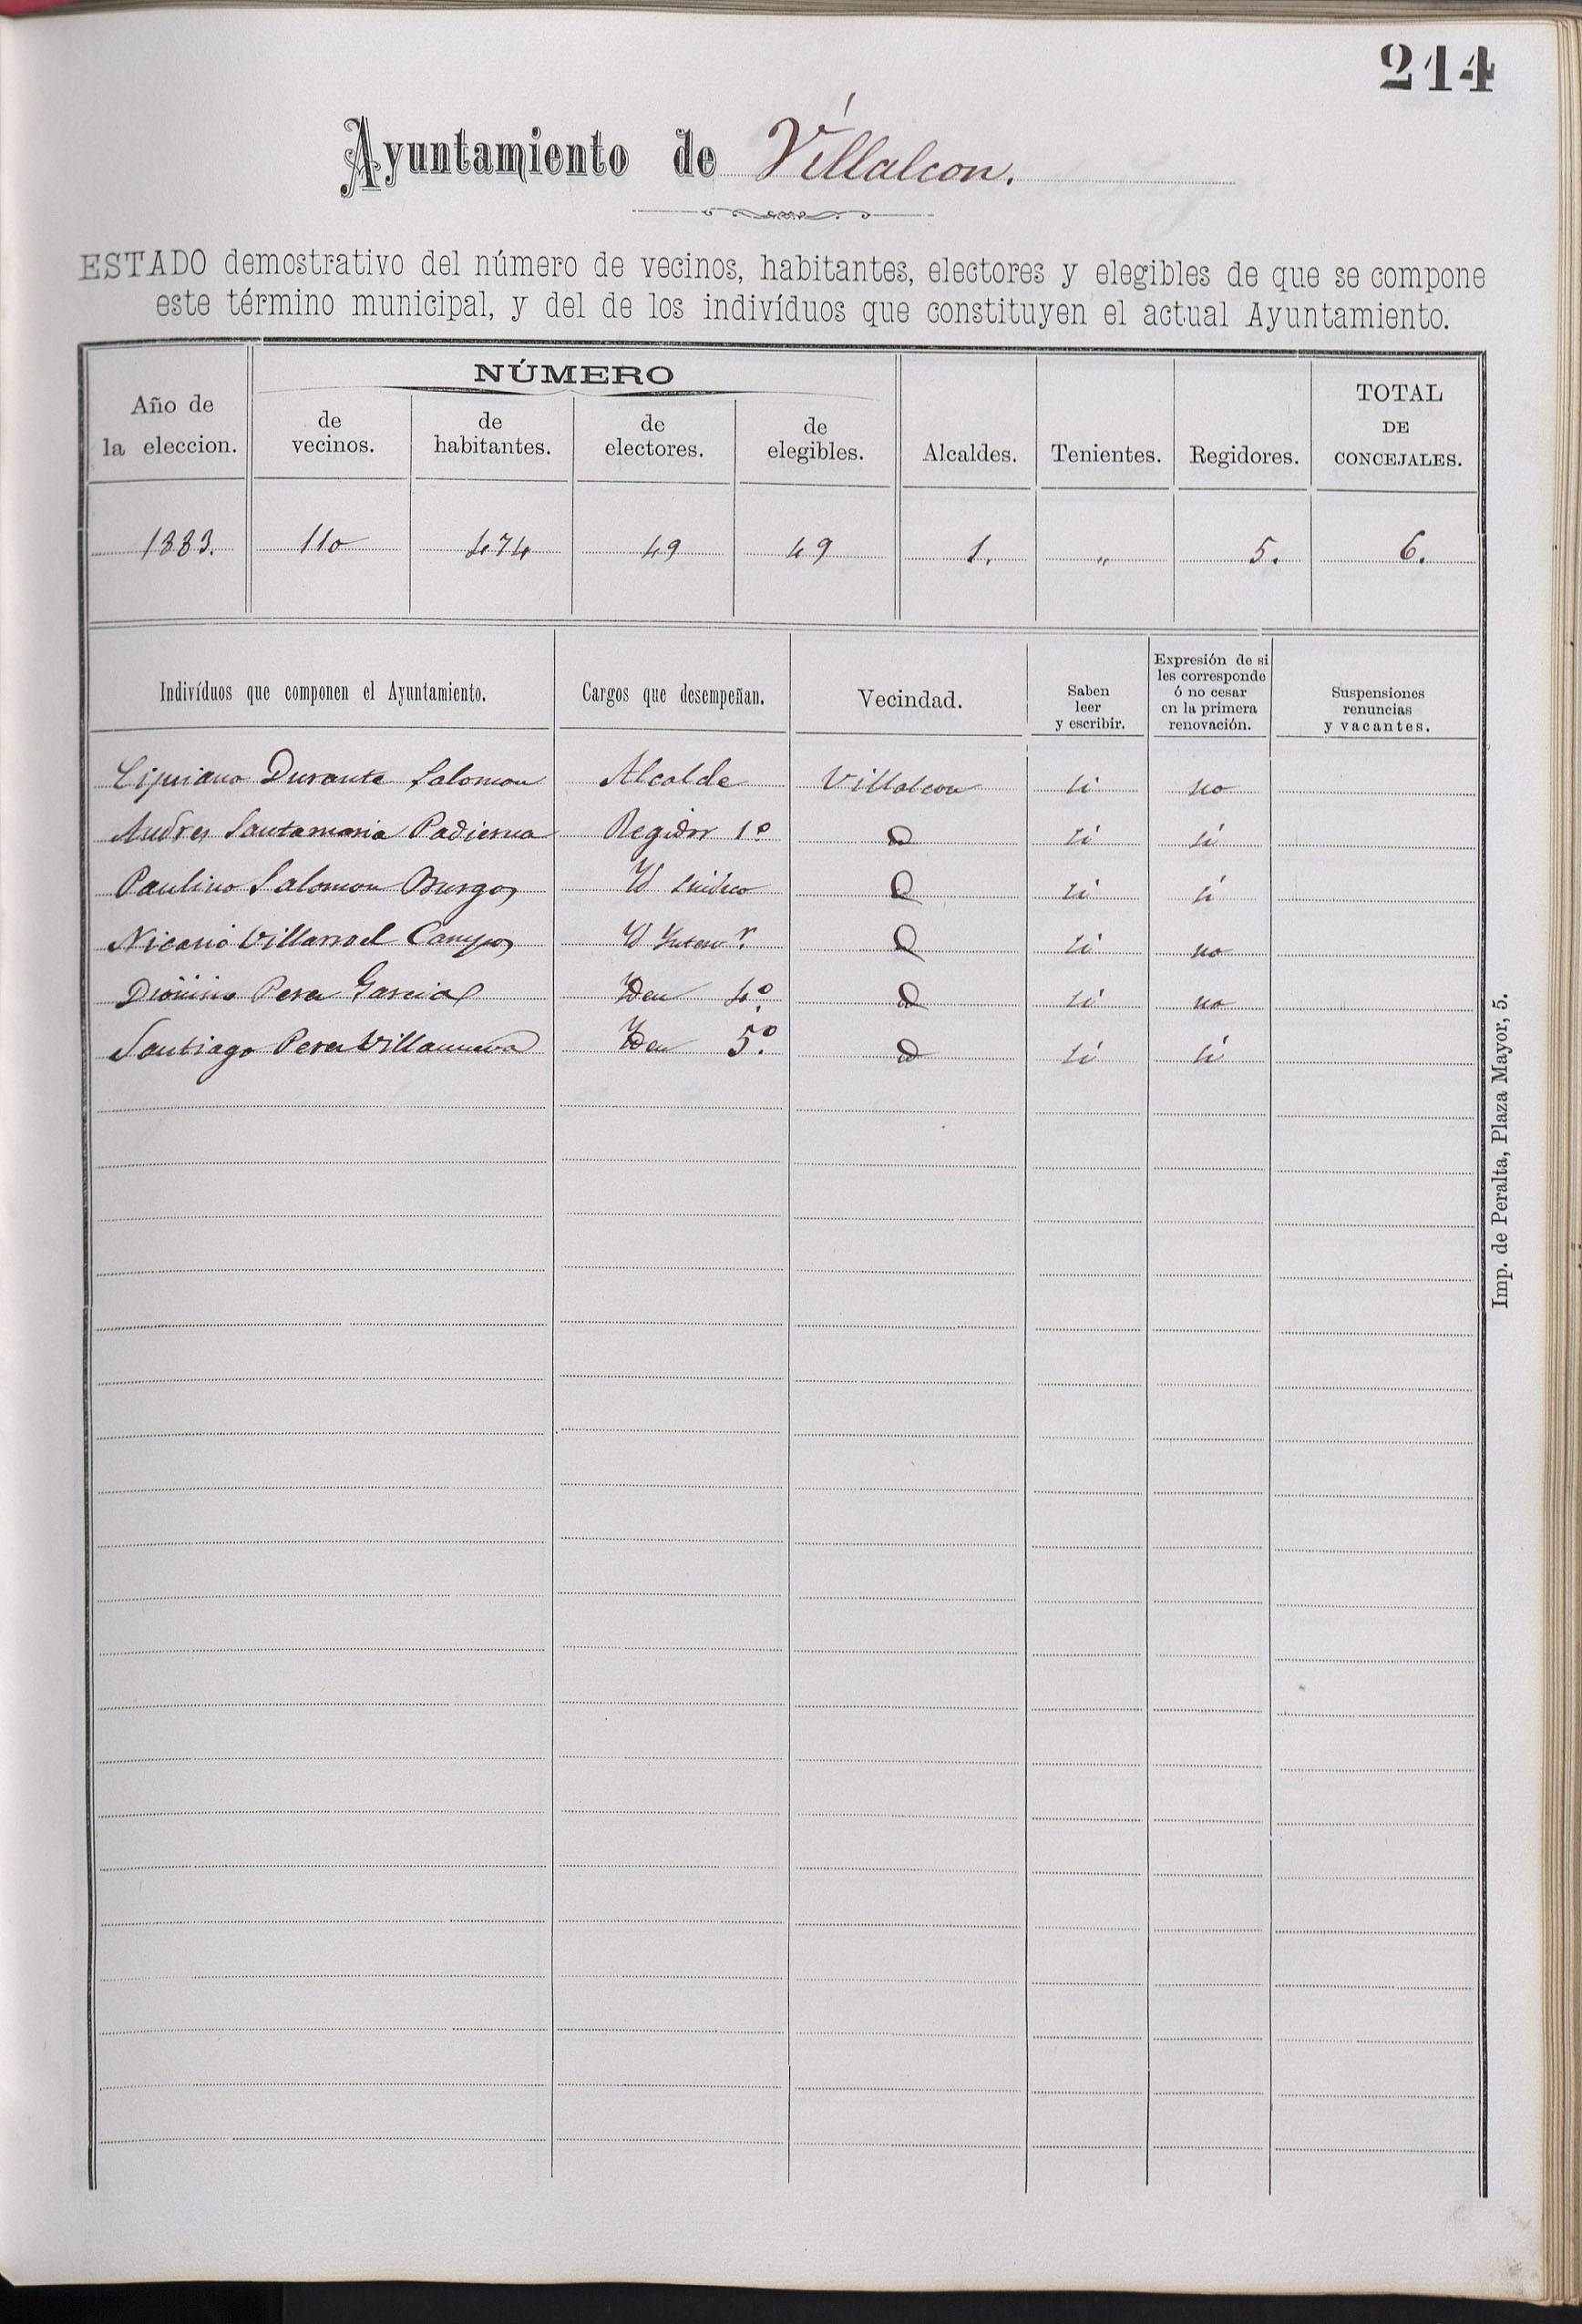 214
Ayuntamiento de Villalcon.
ESTADO demostrativo del número de vecinos, habitantes, electores y elegibles de que se compone
este término municipal, y del de los indivíduos que constituyen el actual Ayuntamiento.
Año de la eleccion. NÚMERO de vecinos. de habitantes. de electores. de elegibles. Alcaldes. Tenientes. Regidores. TOTAL DE CONCEJALES.
1883. 110 474 49 49 1. " 5. 6.
Indivíduos que componen el Ayuntamiento. Cargos que desempeñan. Vecindad. Saben leer y escribir. Expresión de si les corresponde ó no cesar en la primera renovación. Suspensiones renuncias y vacantes.
Cipriano Durante Salomon Alcalde Villalcon si no
Andres Santamaria Padierna Regidor 1º si si
Paulino Salomon Burgos Yd sindico si si
Nicasio Villarroel Campos Yd si no
Dionisio Perez Garcia Yden 4º si no
Santiago Perez Villanueva Yden 5º si si
Imp. de Peralta, Plaza Mayor, 5.